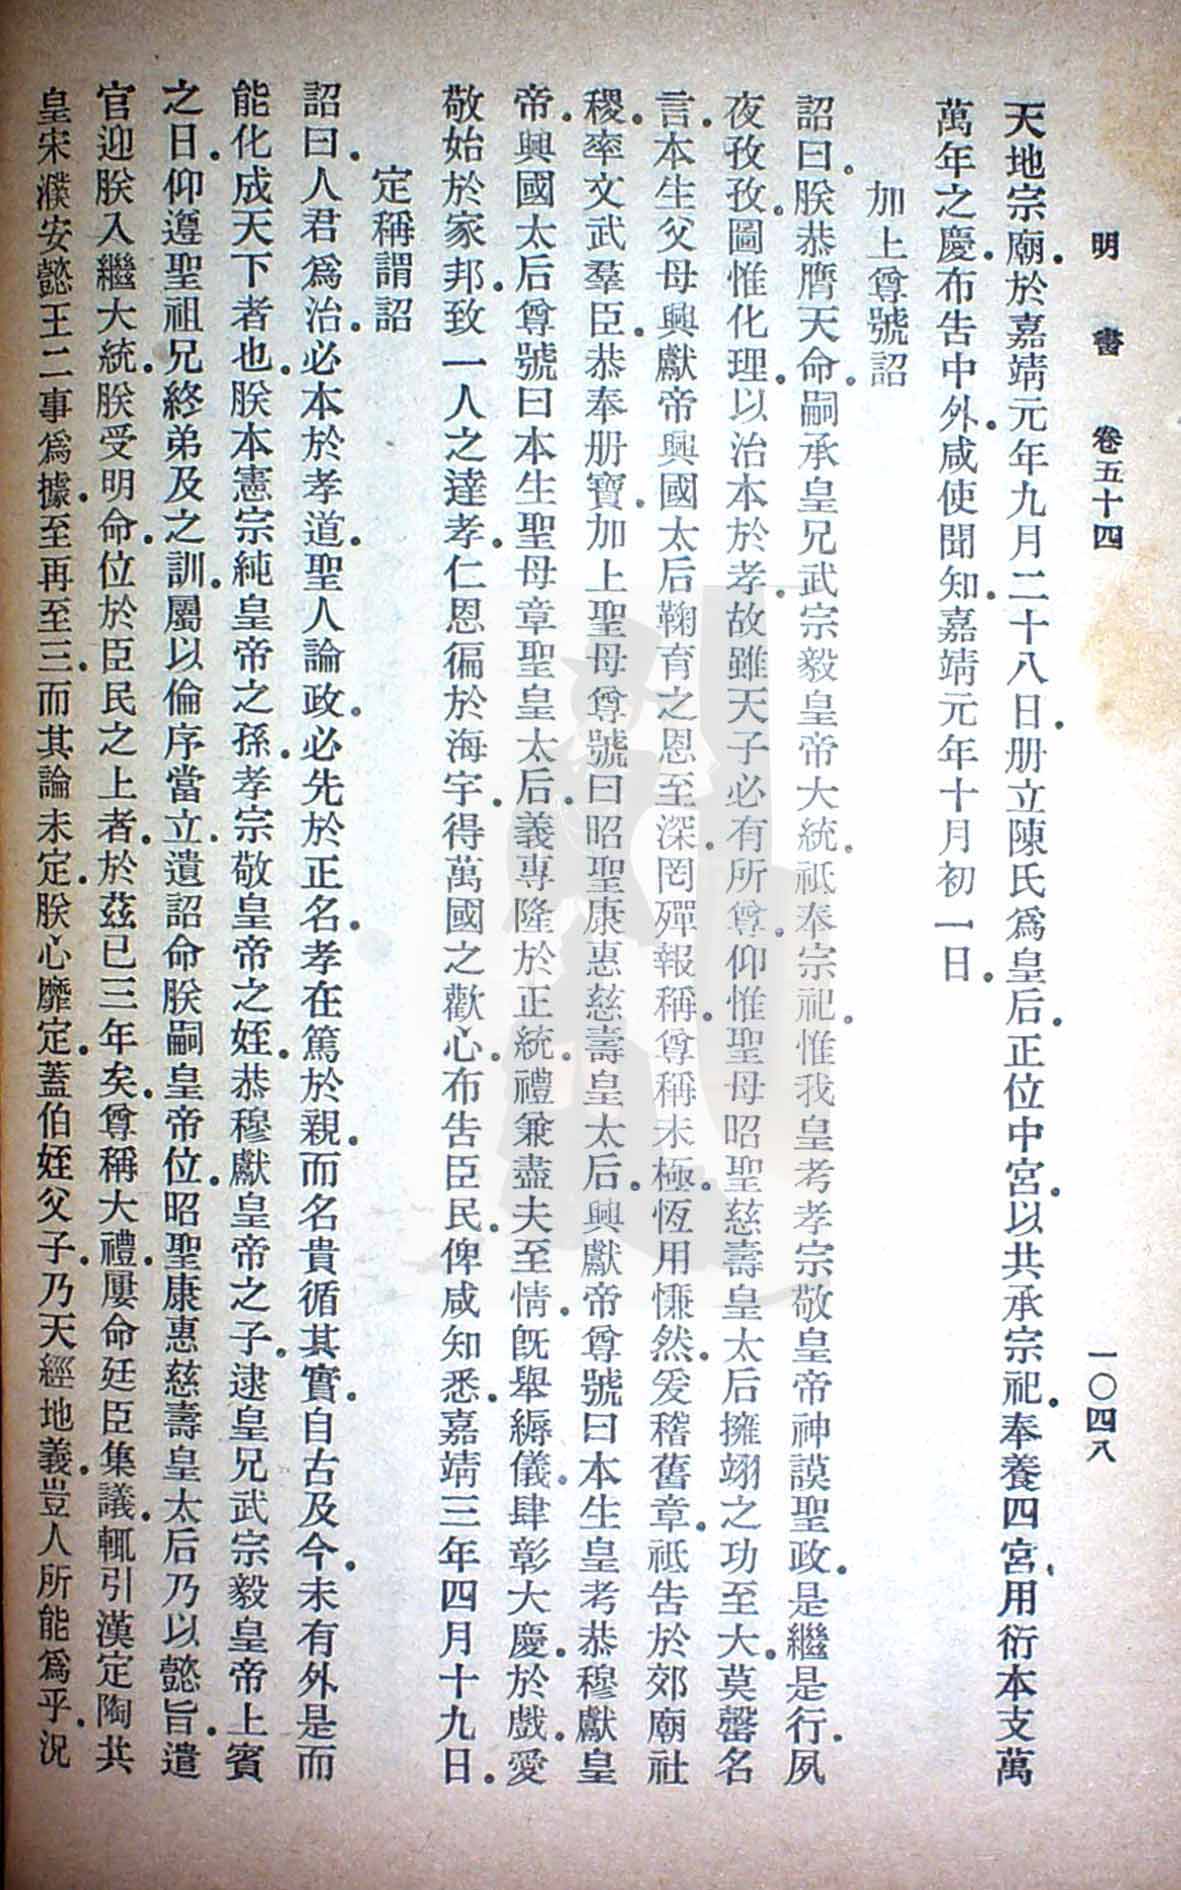 明書 卷五十四 一〇四八
天地宗廟。於嘉靖元年九月二十八日。册立陳氏爲皇后。正位中宮。以共承宗祀。奉養四宮、用衍本支萬
萬年之慶。布告中外。咸使聞知。嘉靖元年十月初一日。
加上尊號詔
詔曰。朕恭膺天命。嗣承皇兄武宗毅皇帝大統。祇奉宗祀。惟我皇考孝宗敬皇帝神謨聖政。是繼是行。夙
夜孜孜。圖惟化理。以治本於孝。故雖天子必有所尊。仰惟聖母昭聖慈壽皇太后擁翊之功至大。莫罄名
言。本生父母興獻帝興國太后鞠育之恩至深。罔殫報稱。尊稱未極。恆用慊然。爰稽舊章。祇告於郊廟社
稷。率文武羣臣。恭奉册寶。加上聖母尊號曰昭聖康惠慈壽皇太后。興獻帝尊號曰本生皇考恭穆獻皇
帝。興國太后尊號曰本生聖母章聖皇太后。義專隆於正統。禮兼盡夫至情。旣舉縟儀。肆彰大慶。於戲。愛
敬始於家邦。致一人之達孝。仁恩徧於海宇。得萬國之歡心。布告臣民。俾咸知悉。嘉靖三年四月十九日。
定稱謂詔
詔曰。人君爲治。必本於孝道。聖人論政。必先於正名。孝在篤於親。而名貴循其實。自古及今。未有外是而
能化成天下者也。朕本憲宗純皇帝之孫。孝宗敬皇帝之姪。恭穆獻皇帝之子。逮皇兄武宗毅皇帝上賓
之日。仰遵聖祖兄終弟及之訓。屬以倫序當立。遺詔命朕嗣皇帝位。昭聖康惠慈壽皇太后乃以懿旨。遣
官迎朕入繼大統。朕受明命。位於臣民之上者。於茲已三年矣。尊稱大禮。屢命廷臣集議。輒引漢定陶共
皇宋濮安懿王二事爲據。至再至三。而其論未定。朕心靡定。蓋伯姪父子。乃天經地義。豈人所能爲乎。況